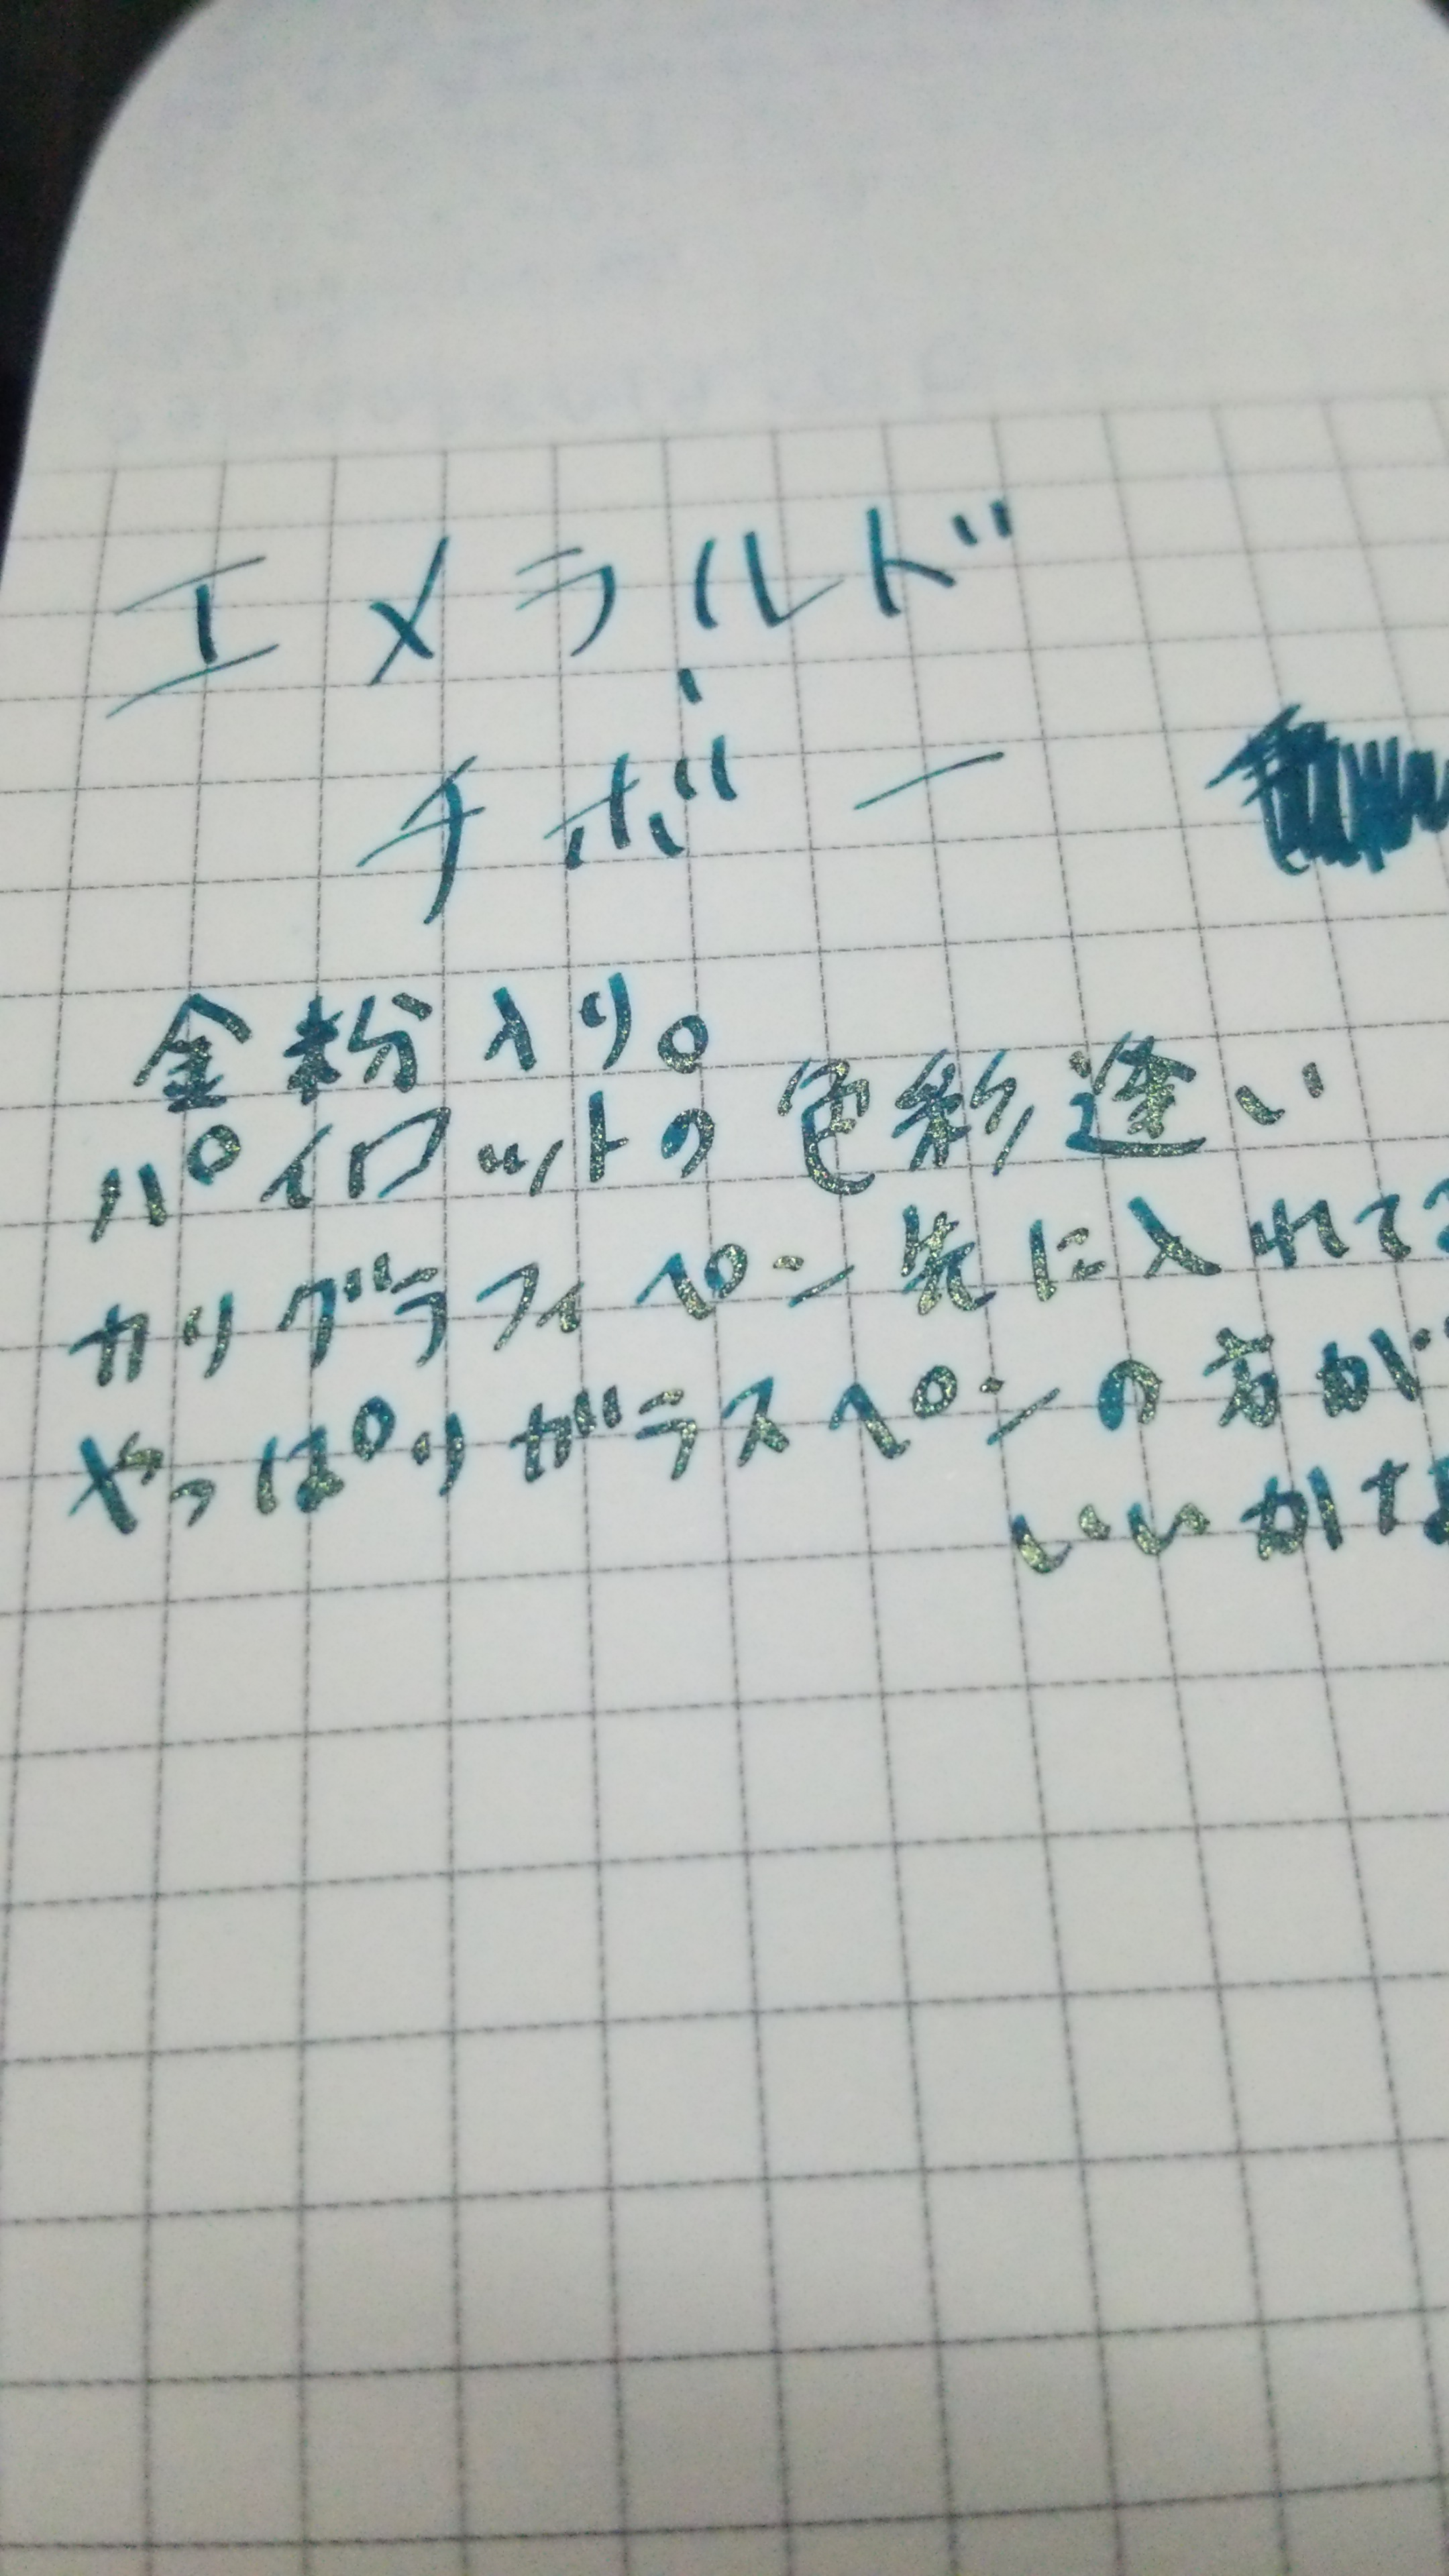 エメラルド
・
チボー
金粉入り。
パイロットの色彩逢い
カリグラフィペン先に入れて
やっぱりガラスペンの方が
いいかな